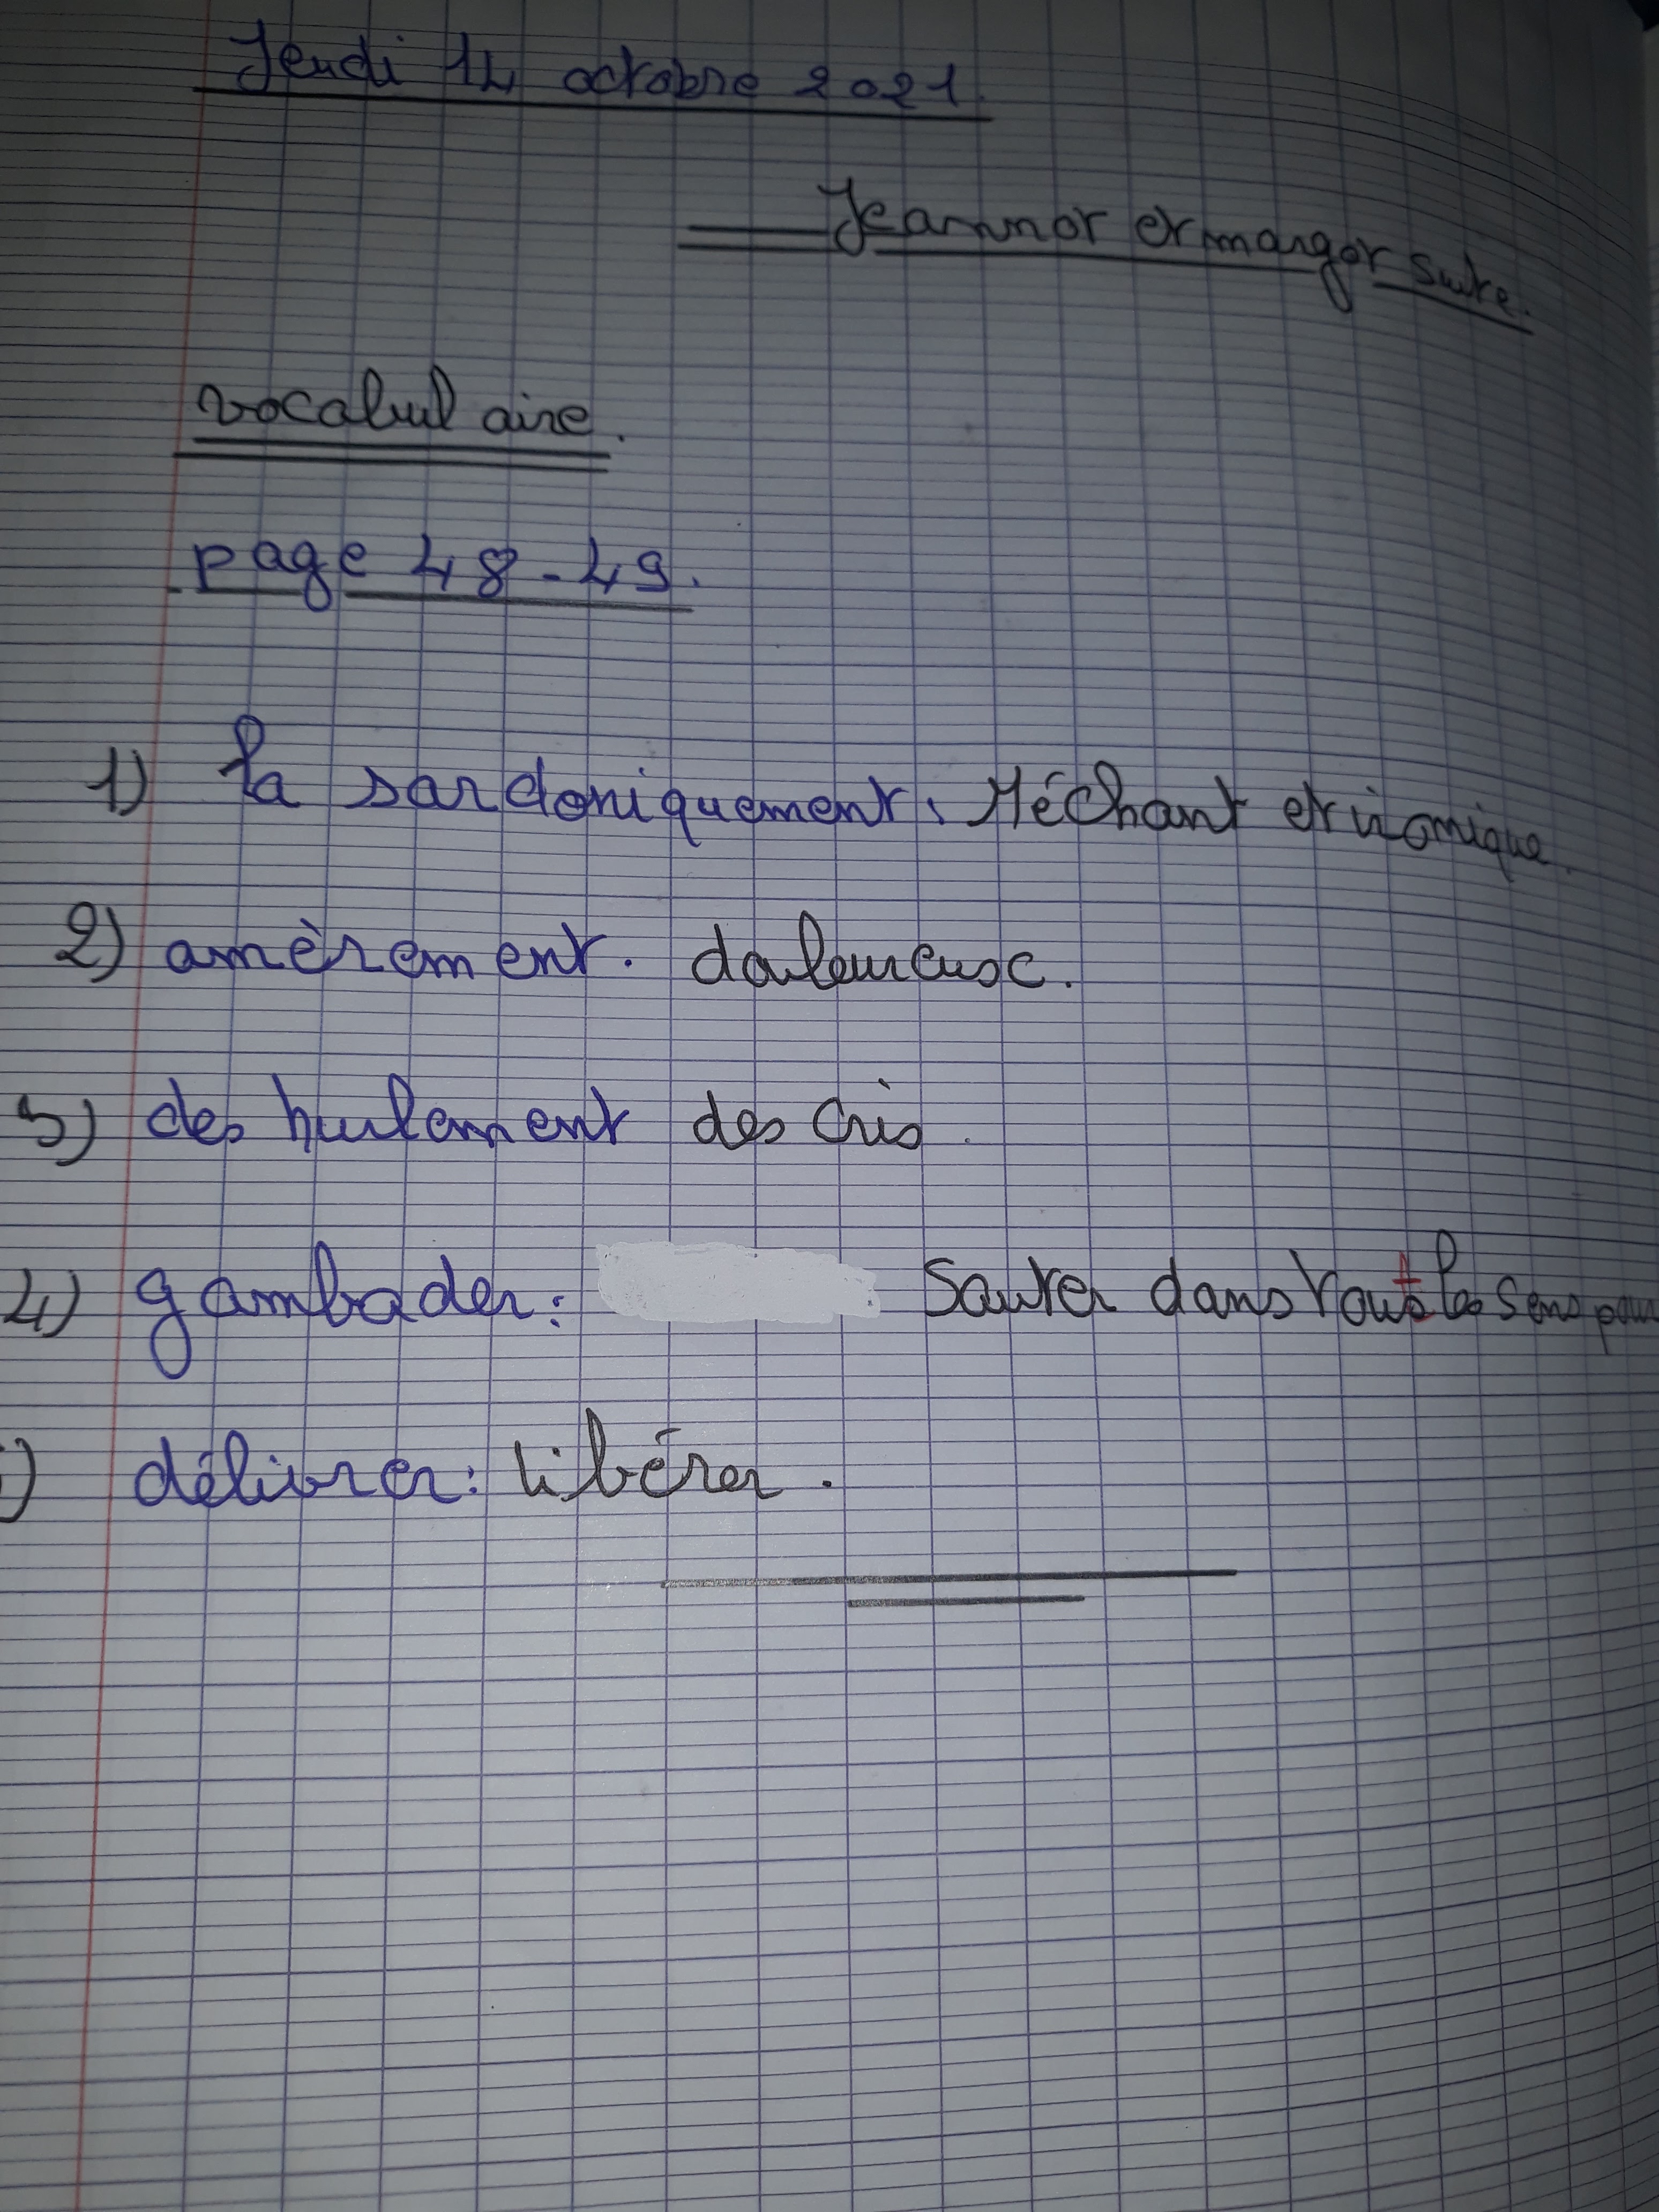 Jeudi 14 octobre 2021.
Jeannot et margot suite.
vocabulaire.
page 48-49.
1) la sardoniquement. Méchant et ironique.
2) amèrement. douleureuse.
3) des hurlement des cris.
4) gambader: Sauter dans tout les sens pour
) délivrer: libérer.